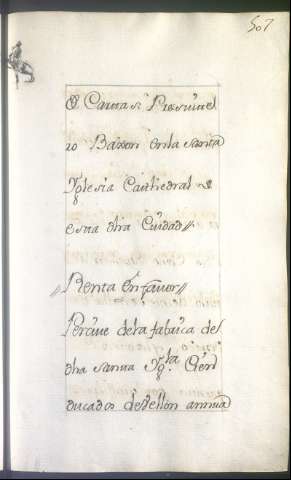 507
Carrasi Presvitel
ro Baxon en la santa
Yglesia Cathedral de
esta dha Ciudad //
// Renta En favor //
Percive de la fabrica del
dha santa Yg.la Cien
ducados de Vellon annua